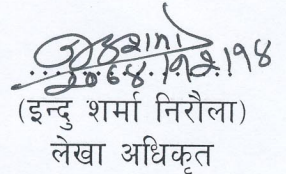 २०६४।१२।१४
(इन्दु शर्मा निरौला)
लेखा अधिकृत